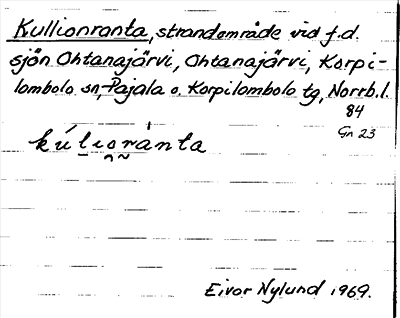 Kullionranta, strandområde vid f.d.
sjön Ohtanajärvi, Ohtanajärvi, Korpi-
lombolo sn, Pajala o. Korpilombolo tg, Norrb.l.
84
Gn 23
kúlioránta
Eivor Nylund 1969.